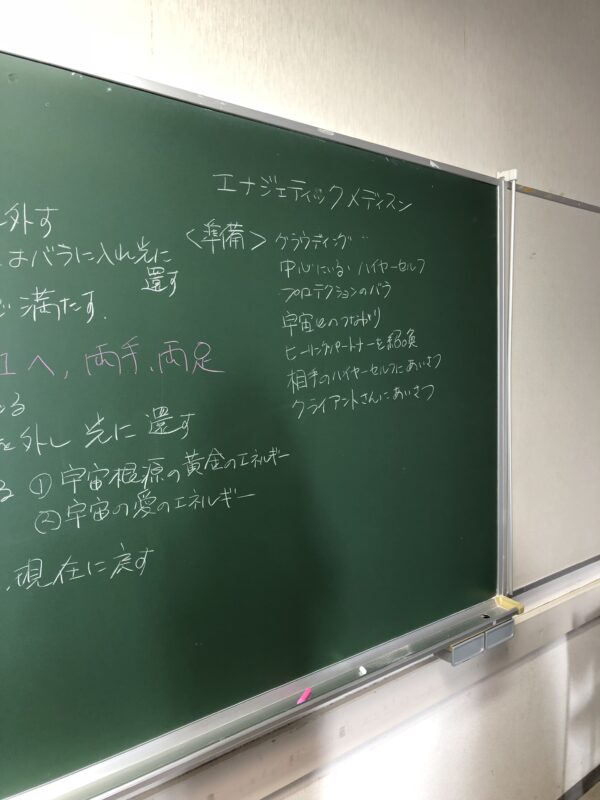 エナジェティックメディスン
<準備> グラウディング
中心にいる ハイヤーセルフ
プロテクションのバラ
宇宙とのつながり
ヒーリングパートナーを
相手のハイヤーセルフにあいさつ
クライアントさんにあいさつ
外す
はバラに入れ光に
還す
満たす.
へ, 両手, 両足
る
を外し 光に 還す
る ① 宇宙根源の黄金のエネルギー
② 宇宙の愛のエネルギー
現在に戻す